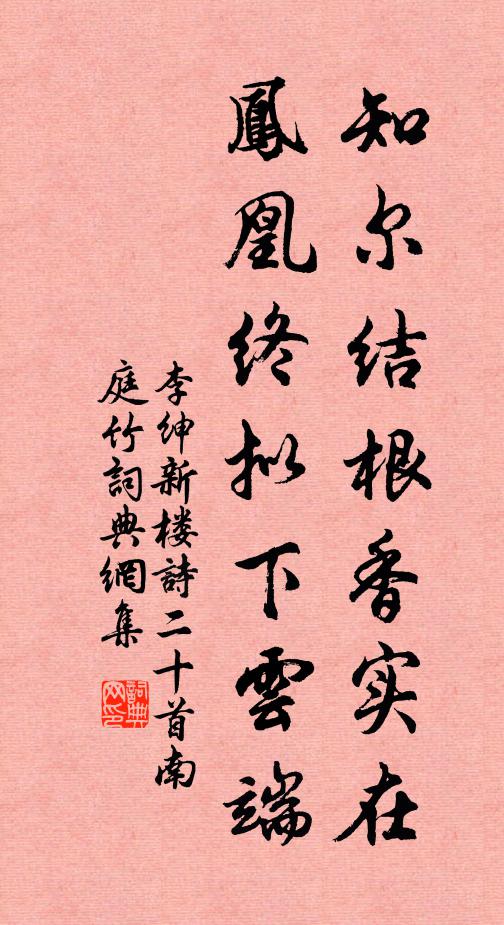 知尔结根香实在
鳳凰终拟下雲端
李绅新楼詩二十首南
庭竹詞典網集
詞典
网印